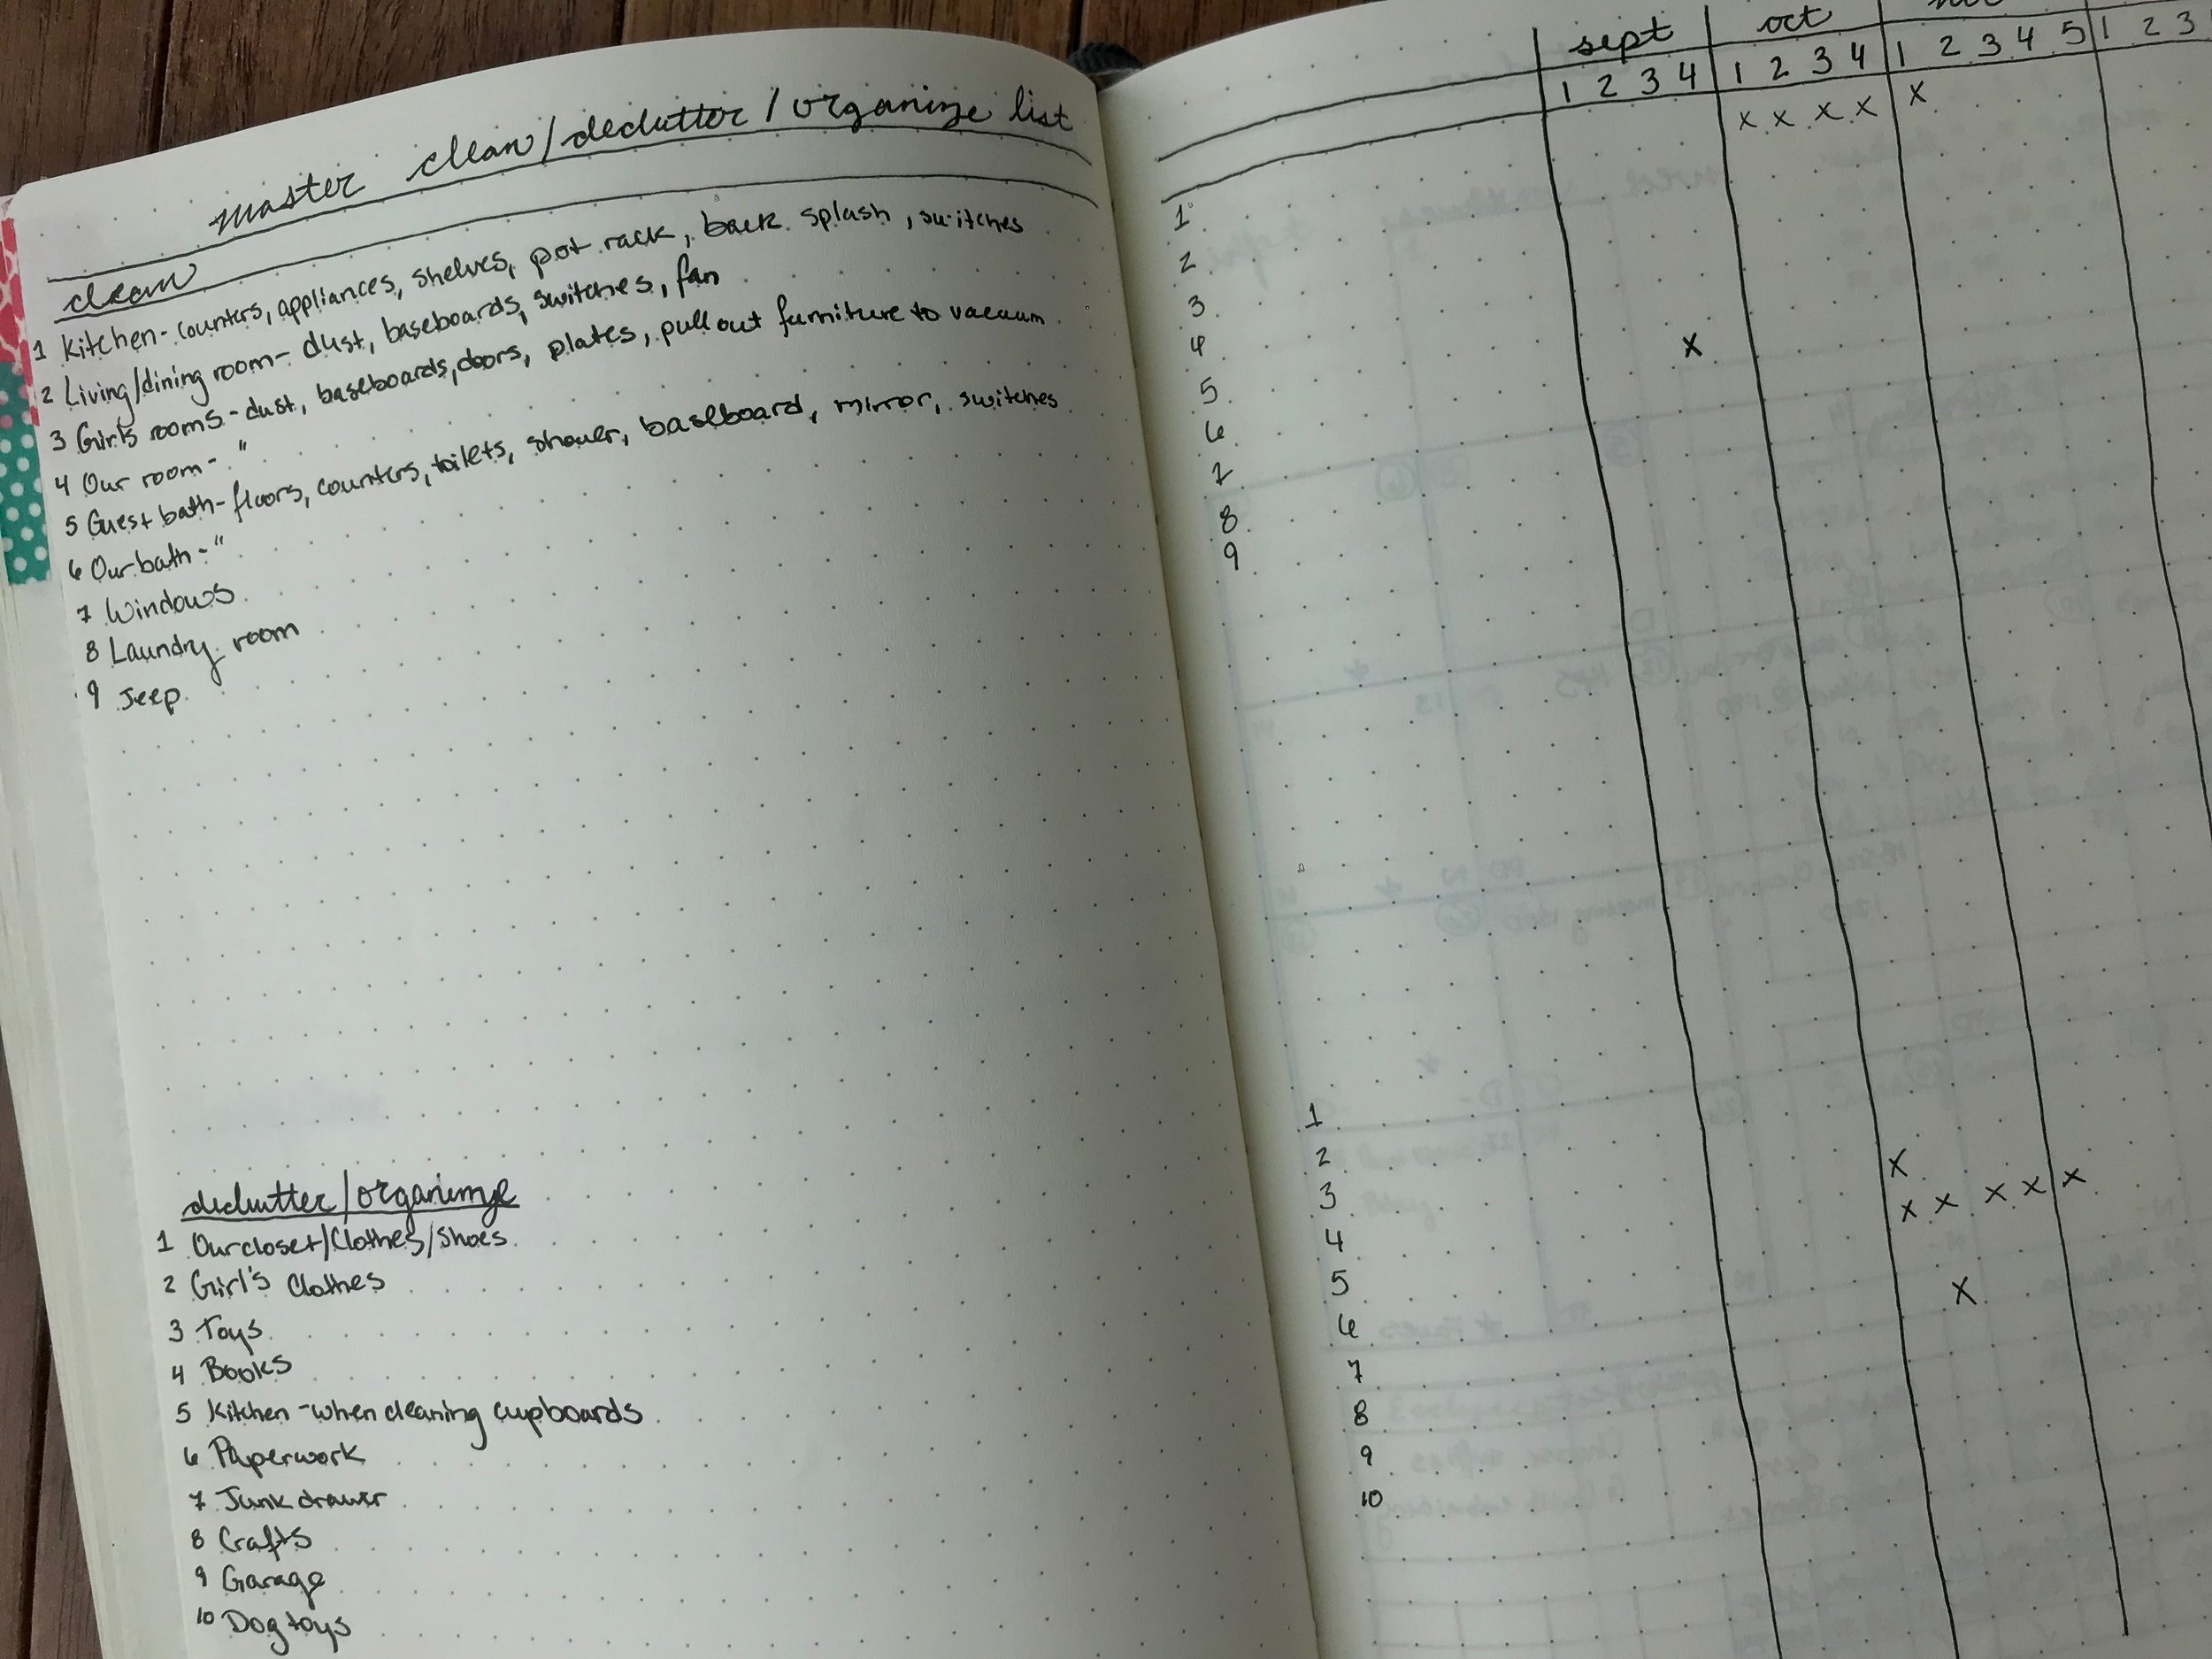 master clean/declutter/organize list
clean
1 Kitchen - counters, appliances, shelves, pot rack, back splash, switches
2 Living/dining room - dust, baseboards, switches, fan
3 Girl's rooms - dust, baseboards, doors, plates, pull out furniture to vacuum
4 Our room - "
5 Guest bath - floors, counters, toilets, shower, baseboard, mirror, switches
6 Our bath - "
7 Windows
8 Laundry room
9 Jeep
declutter/organize
1 Our closet/Clothes/Shoes
2 Girl's Clothes
3 Toys
4 Books
5 Kitchen - when cleaning cupboards
6 Paperwork
7 Junk drawer
8 Crafts
9 Garage
10 Dog toys
sept oct
1 2 3 4 1 2 3 4 1 2 3 4 5 1 2 3
x x x x x
1
2
3
4 x
5
6
7
8
9
1
2 x
3 x x x x x
4
5 x
6
7
8
9
10